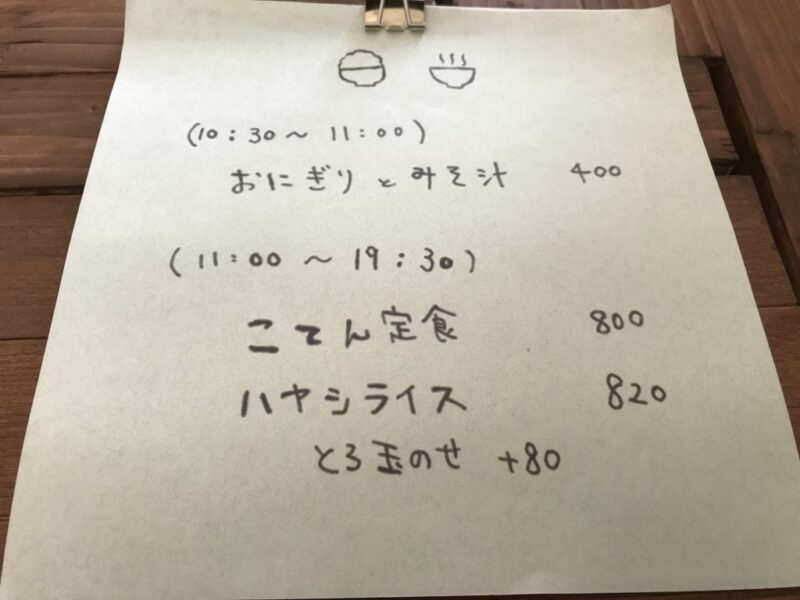 (10:30〜11:00)
おにぎりとみそ汁 400
(11:00〜19:30)
こてん定食 800
ハヤシライス 820
とろ玉のせ +80